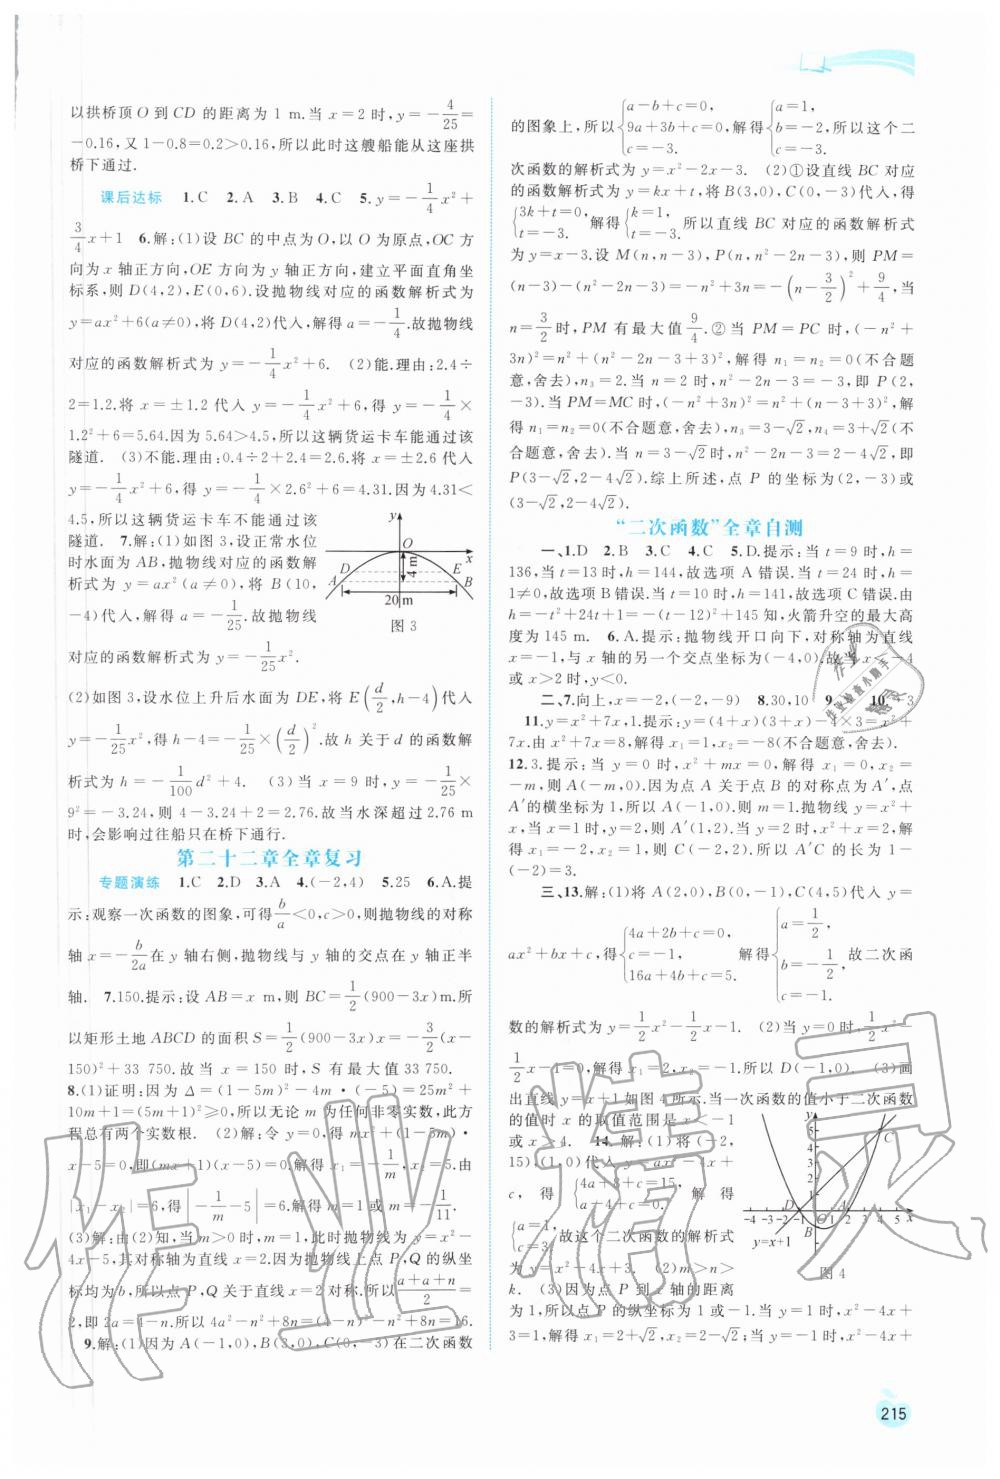 以拱桥顶 O 到 CD 的距离为 1 m.当 x=2 时,y=-4/25=
-0.16,又 1-0.8=0.2>0.16,所以此时这艘船能从这座拱
桥下通过.
课后达标 1.C 2.A 3.B 4.C 5.y=-1/4x²+
3/4x+1 6.解:(1)设 BC 的中点为 O,以 O 为原点,OC 方
向为 x 轴正方向,OE 方向为 y 轴正方向,建立平面直角坐
标系,则 D(4,2),E(0,6).设抛物线对应的函数解析式为
y=ax²+6(a≠0),将 D(4,2)代入,解得 a=-1/4.故抛物线
对应的函数解析式为 y=-1/4x²+6. (2)能.理由:2.4÷
2=1.2.将 x=±1.2 代入 y=-1/4x²+6,得 y=-1/4×
1.2²+6=5.64.因为 5.64>4.5,所以这辆货运卡车能通过该
隧道. (3)不能.理由:0.4÷2+2.4=2.6.将 x=±2.6 代入
y=-1/4x²+6,得 y=-1/4×2.6²+6=4.31.因为 4.31<
4.5,所以这辆货运卡车不能通过该
隧道. 7.解:(1)如图 3,设正常水位
时水面为 AB,抛物线对应的函数解
析式为 y=ax²(a≠0),将 B(10,
-4)代入,解得 a=-1/25.故抛物线
对应的函数解析式为 y=-1/25x².
y
O
x
D
E
4 m
A
B
20 m
图 3
(2)如图 3,设水位上升后水面为 DE,将 E(d/2,h-4)代入
y=-1/25x²,得 h-4=-1/25×(d/2)².故 h 关于 d 的函数解
析式为 h=-1/100d²+4. (3)当 x=9 时,y=-1/25×
9²=-3.24,则 4-3.24+2=2.76.故当水深超过 2.76 m
时,会影响过往船只在桥下通行.
第二十二章全章复习
专题演练 1.C 2.D 3.A 4.(-2,4) 5.25 6.A.提
示:观察一次函数的图象,可得b/a<0,c>0,则抛物线的对称
轴=-b/2a在 y 轴右侧,抛物线与 y 轴的交点在 y 轴正半
轴. 7.150.提示:设 AB=x m,则 BC=1/2(900-3x)m.所
以矩形土地 ABCD 的面积 S=1/2(900-3x)x=-3/2(x-
150)²+33 750.当 x=150 时,S 有最大值 33 750.
8.(1)证明:因为 Δ=(1-5m)²-4m·(-5)=25m²+
10m+1=(5m+1)²≥0,所以无论 m 为任何非零实数,此方
程总有两个实数根. (2)解:令 y=0,得 mx²+(1-5m)·
x-5=0,即(mx+1)(x-5)=0.解得 x₁=-1/m,x₂=5.由
|x₁-x₂|=6,得|-1/m-5|=6.解得 m=1 或 m=-1/11.
(3)解:由(2)知,当 m>0 时,m=1,此时抛物线为 y=x²-
4x-5,其对称轴为直线 x=2.因为抛物线上点 P,Q 的纵坐
标均为 b,所以点 P,Q 关于直线 x=2 对称.所以(a+a+n)/2=
2,即 2a=4-n.所以 4a²-n²+8n=(4-n)²-n²+8n=16.
9.解:(1)因为 A(-1,0),B(3,0),C(0,-3)在二次函数
的图象上,所以{a-b+c=0, 9a+3b+c=0, c=-3. 解得{a=1, b=-2, c=-3. 所以这个二
次函数的解析式为 y=x²-2x-3. (2)①设直线 BC 对应
的函数解析式为 y=kx+t,将 B(3,0),C(0,-3)代入,得
{3k+t=0, t=-3. 解得{k=1, t=-3. 所以直线 BC 对应的函数解析式
为 y=x-3.设 M(n,n-3),P(n,n²-2n-3),则 PM=
(n-3)-(n²-2n-3)=-n²+3n=-(n-3/2)²+9/4,当
n=3/2时,PM 有最大值9/4.②当 PM=PC 时,(-n²+
3n)²=n²+(n²-2n-3+3)²,解得 n₁=n₂=0(不合题
意,舍去),n₃=2.当 n=2 时,n²-2n-3=-3,即 P(2,
-3).当 PM=MC 时,(-n²+3n)²=n²+(n-3+3)²,解
得 n₁=n₂=0(不合题意,舍去),n₃=3-√2,n₄=3+√2(不
合题意,舍去).当 n=3-√2时,n²-2n-3=2-4√2,即
P(3-√2,2-4√2).综上所述,点 P 的坐标为(2,-3)或
(3-√2,2-4√2).
“二次函数”全章自测
一、1.D 2.B 3.C 4.C 5.D.提示:当 t=9 时,h=
136,当 t=13 时,h=144,故选项 A 错误.当 t=24 时,h=
1≠0,故选项 B 错误.当 t=10 时,h=141,故选项 C 错误.由
h=-t²+24t+1=-(t-12)²+145 知,火箭升空的最大高
度为 145 m. 6.A.提示:抛物线开口向下,对称轴为直线
x=-1,与 x 轴的另一个交点坐标为(-4,0).故当 x<-4
或 x>2 时,y<0.
二、7.向上,x=-2,(-2,-9) 8.30,10 9. 10.-3
11.y=x²+7x,1.提示:y=(4+x)(3+x)-4×3=x²+
7x.由 x²+7x=8,解得 x₁=1,x₂=-8(不合题意,舍去).
12.3.提示:当 y=0 时,x²+mx=0,解得 x₁=0,x₂=
-m,则 A(-m,0).因为点 A 关于点 B 的对称点为 A′,点
A′的横坐标为 1,所以 A(-1,0).则 m=1.抛物线 y=x²+
x,当 x=1 时,y=x²+x=2,则 A′(1,2).当 x=-2 时,
y=x²+x=2,则 C(-2,2).所以 A′C 的长为 1-
(-2)=3.
三、13.解:(1)将 A(2,0),B(0,-1),C(4,5)代入 y=
ax²+bx+c,得{4a+2b+c=0, c=-1, 16a+4b+c=5. 解得{a=1/2, b=-1/2, c=-1. 故二次函
数的解析式为 y=1/2x²-1/2x-1. (2)当 y=0 时,1/2x²-
1/2x-1=0,解得 x₁=2,x₂=-1,所以 D(-1,0). (3)画
出直线 y=x+1 如图 4 所示.当一次函数的值小于二次函数
的值时 x 的取值范围是 x<-1
或 x>4. 14.解:(1)将(-2,
15),(1,0)代入 y=ax²-4x+
c,得{4a+8+c=15, a-4+c=0. 解得
{a=1, c=3. 故这个二次函数的解析式
为 y=x²-4x+3. (2)m>n>
k. (3)因为点 P 到 x 轴的距离
y
5
4
3
2
1
C
D
A
B
O
-4 -3 -2 -1 1 2 3 4 5 x
y=x+1
图 4
为 1,所以点 P 的纵坐标为 1 或-1.当 y=1 时,x²-4x+
3=1,解得 x₁=2+√2,x₂=2-√2;当 y=-1 时,x²-4x+
215
作业精灵